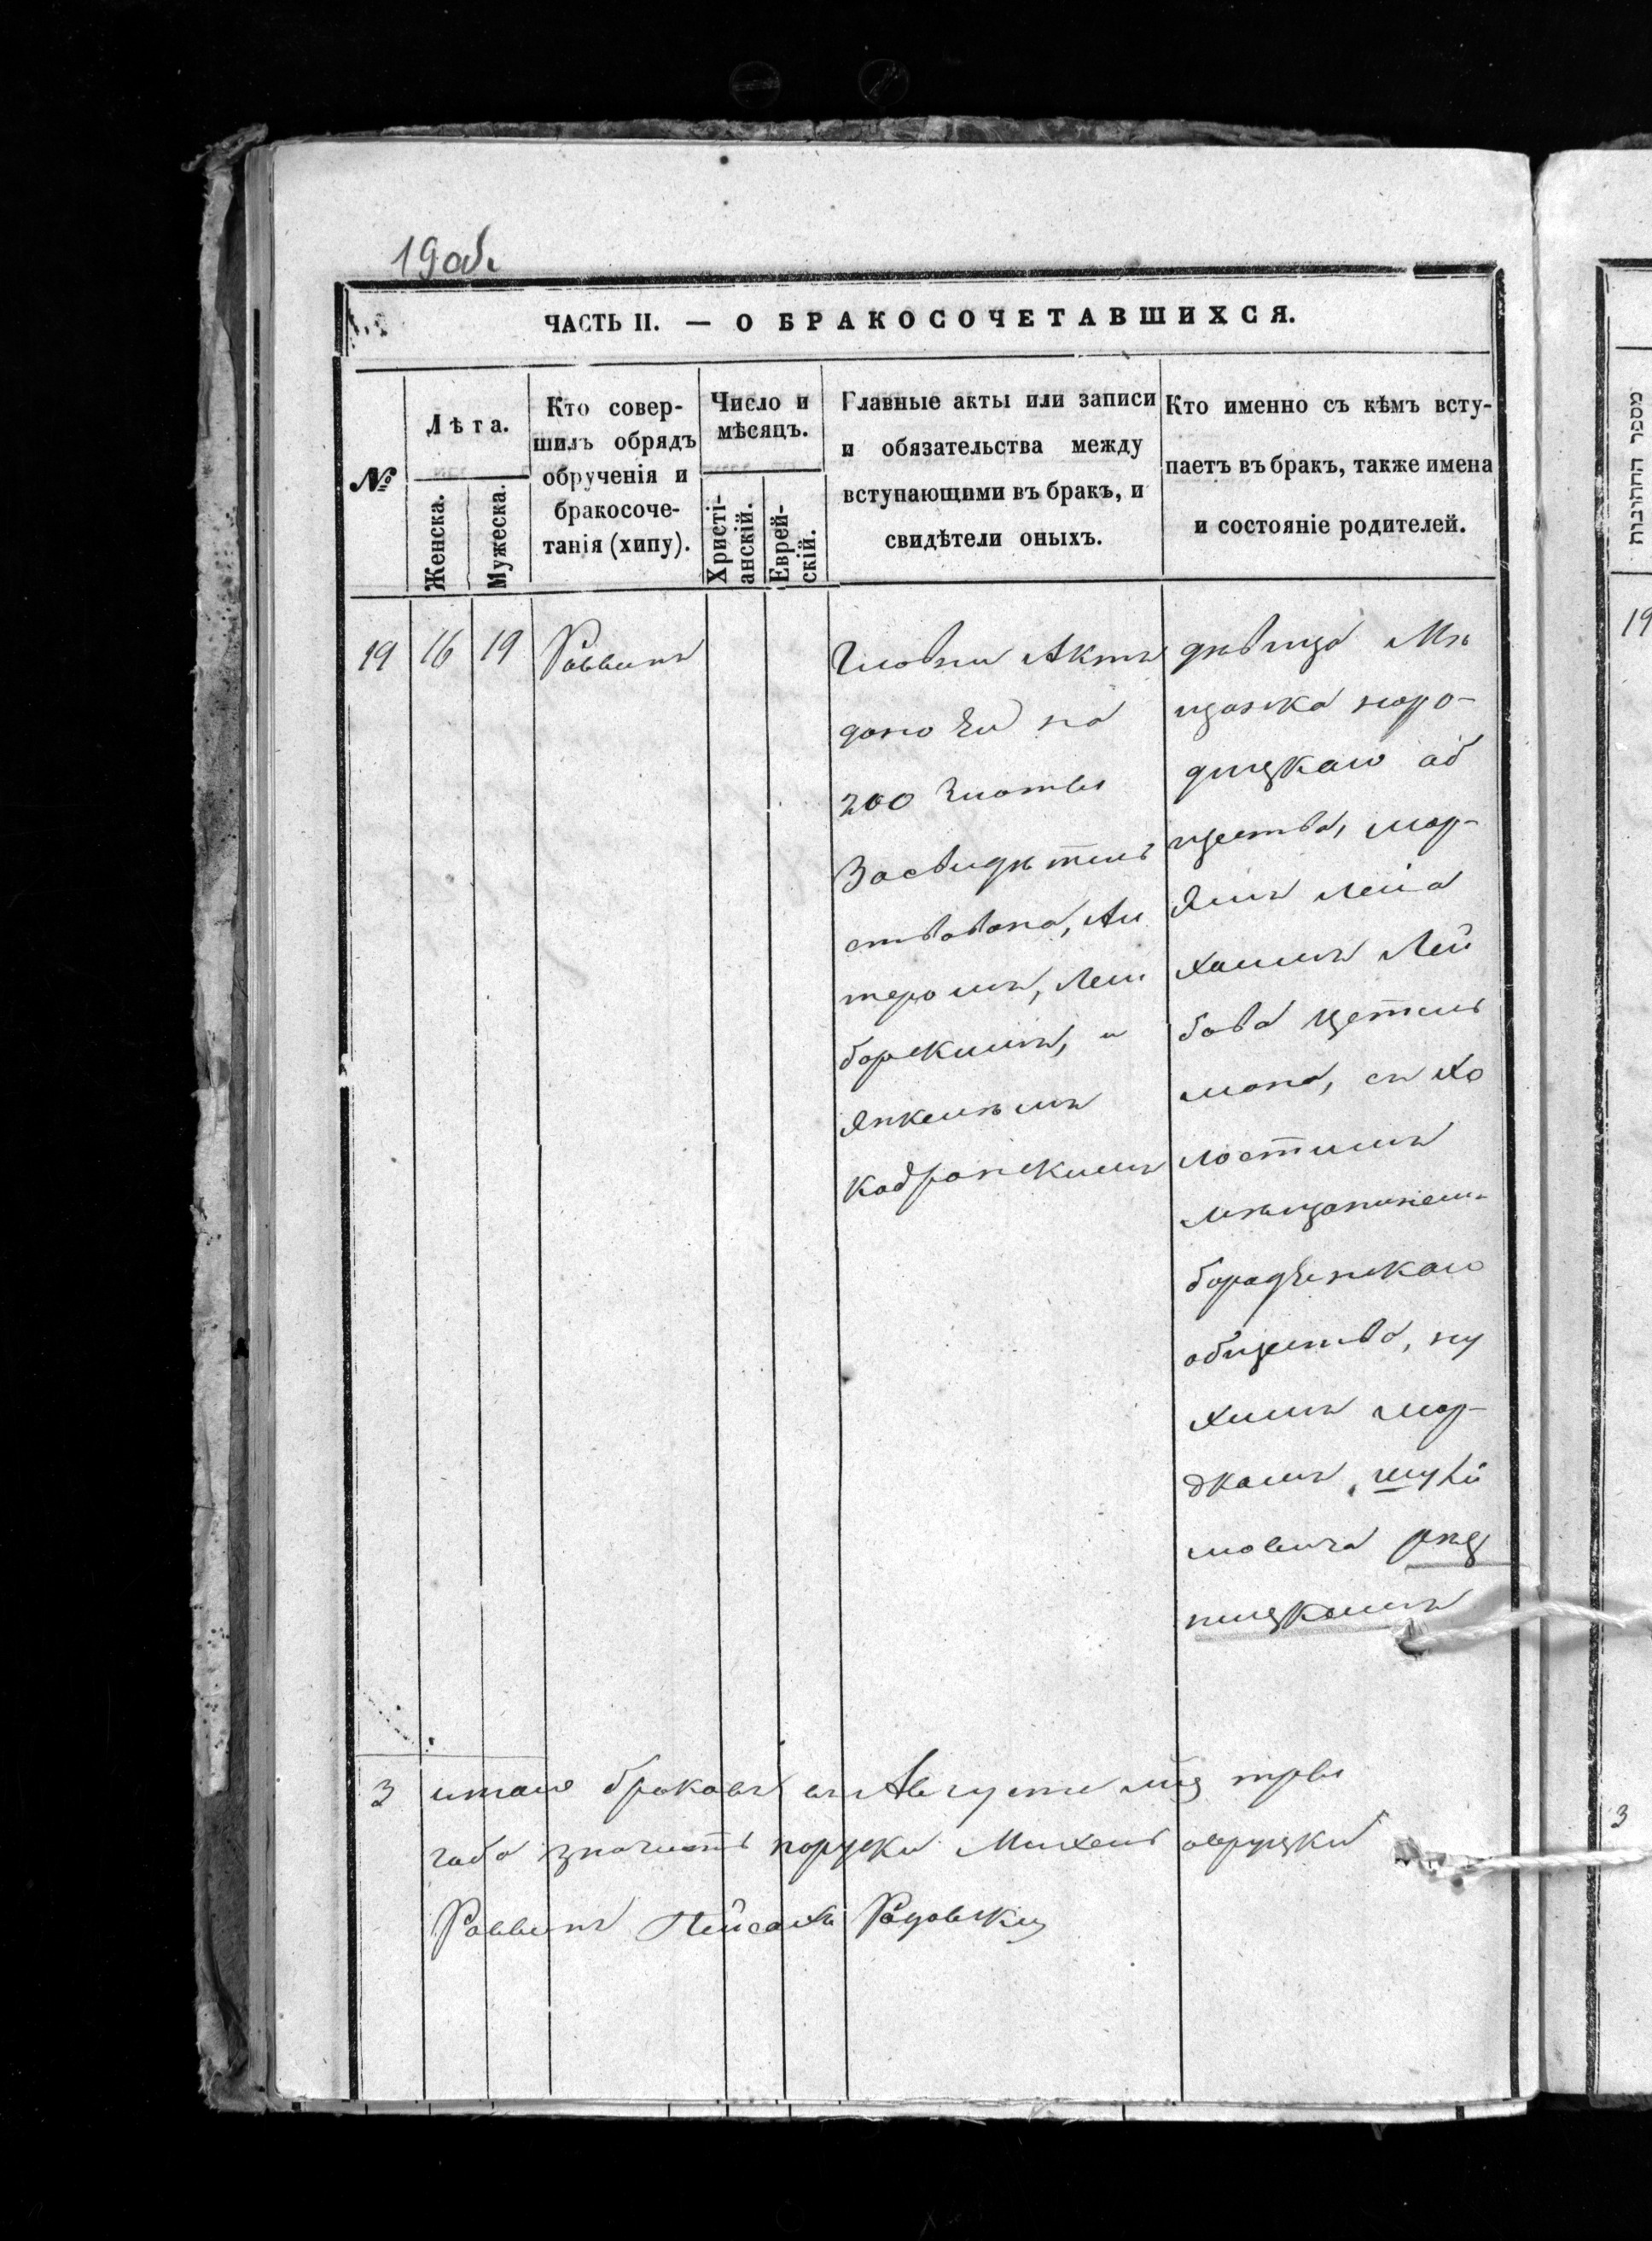 19 об.
ЧАСТЬ II. — О БРАКОСОЧЕТАВШИХСЯ.
№
Лѣта.
Женска.
Мужеска.
Кто совер-
шилъ обрядъ
обрученія и
бракосоче-
танія (хипу).
Число и
мѣсяцъ.
Христі-
анскій.
Еврей-
скій.
Главные акты или записи
и обязательства между
вступающими въ бракъ, и
свидѣтели оныхъ.
Кто именно съ кѣмъ всту-
паетъ въ бракъ, также имена
и состояніе родителей.
19
16
19
Раввинъ
Гловни Актъ
дано Ей на
200 Злотыя
Засвидѣтель
ствована, Ли
перомъ, Леи
борскимъ, и
Янкелѣмъ
Кадранскимъ
дѣвица Мѣ
щанка наро-
дицкаго об
щества, мар-
ямъ леіа
хаимъ Лей
бова цетель
мана, съ хо
лостимъ
мѣщанинем
общества, ну
химъ мор-
дкамъ, шулі
мовича рѣз
ницкамъ
3 итаго браковъ въ Августе м-ц три
габа значитъ Михель овруцки
Раввинъ Пейсахъ
מספר החתונות
19
3